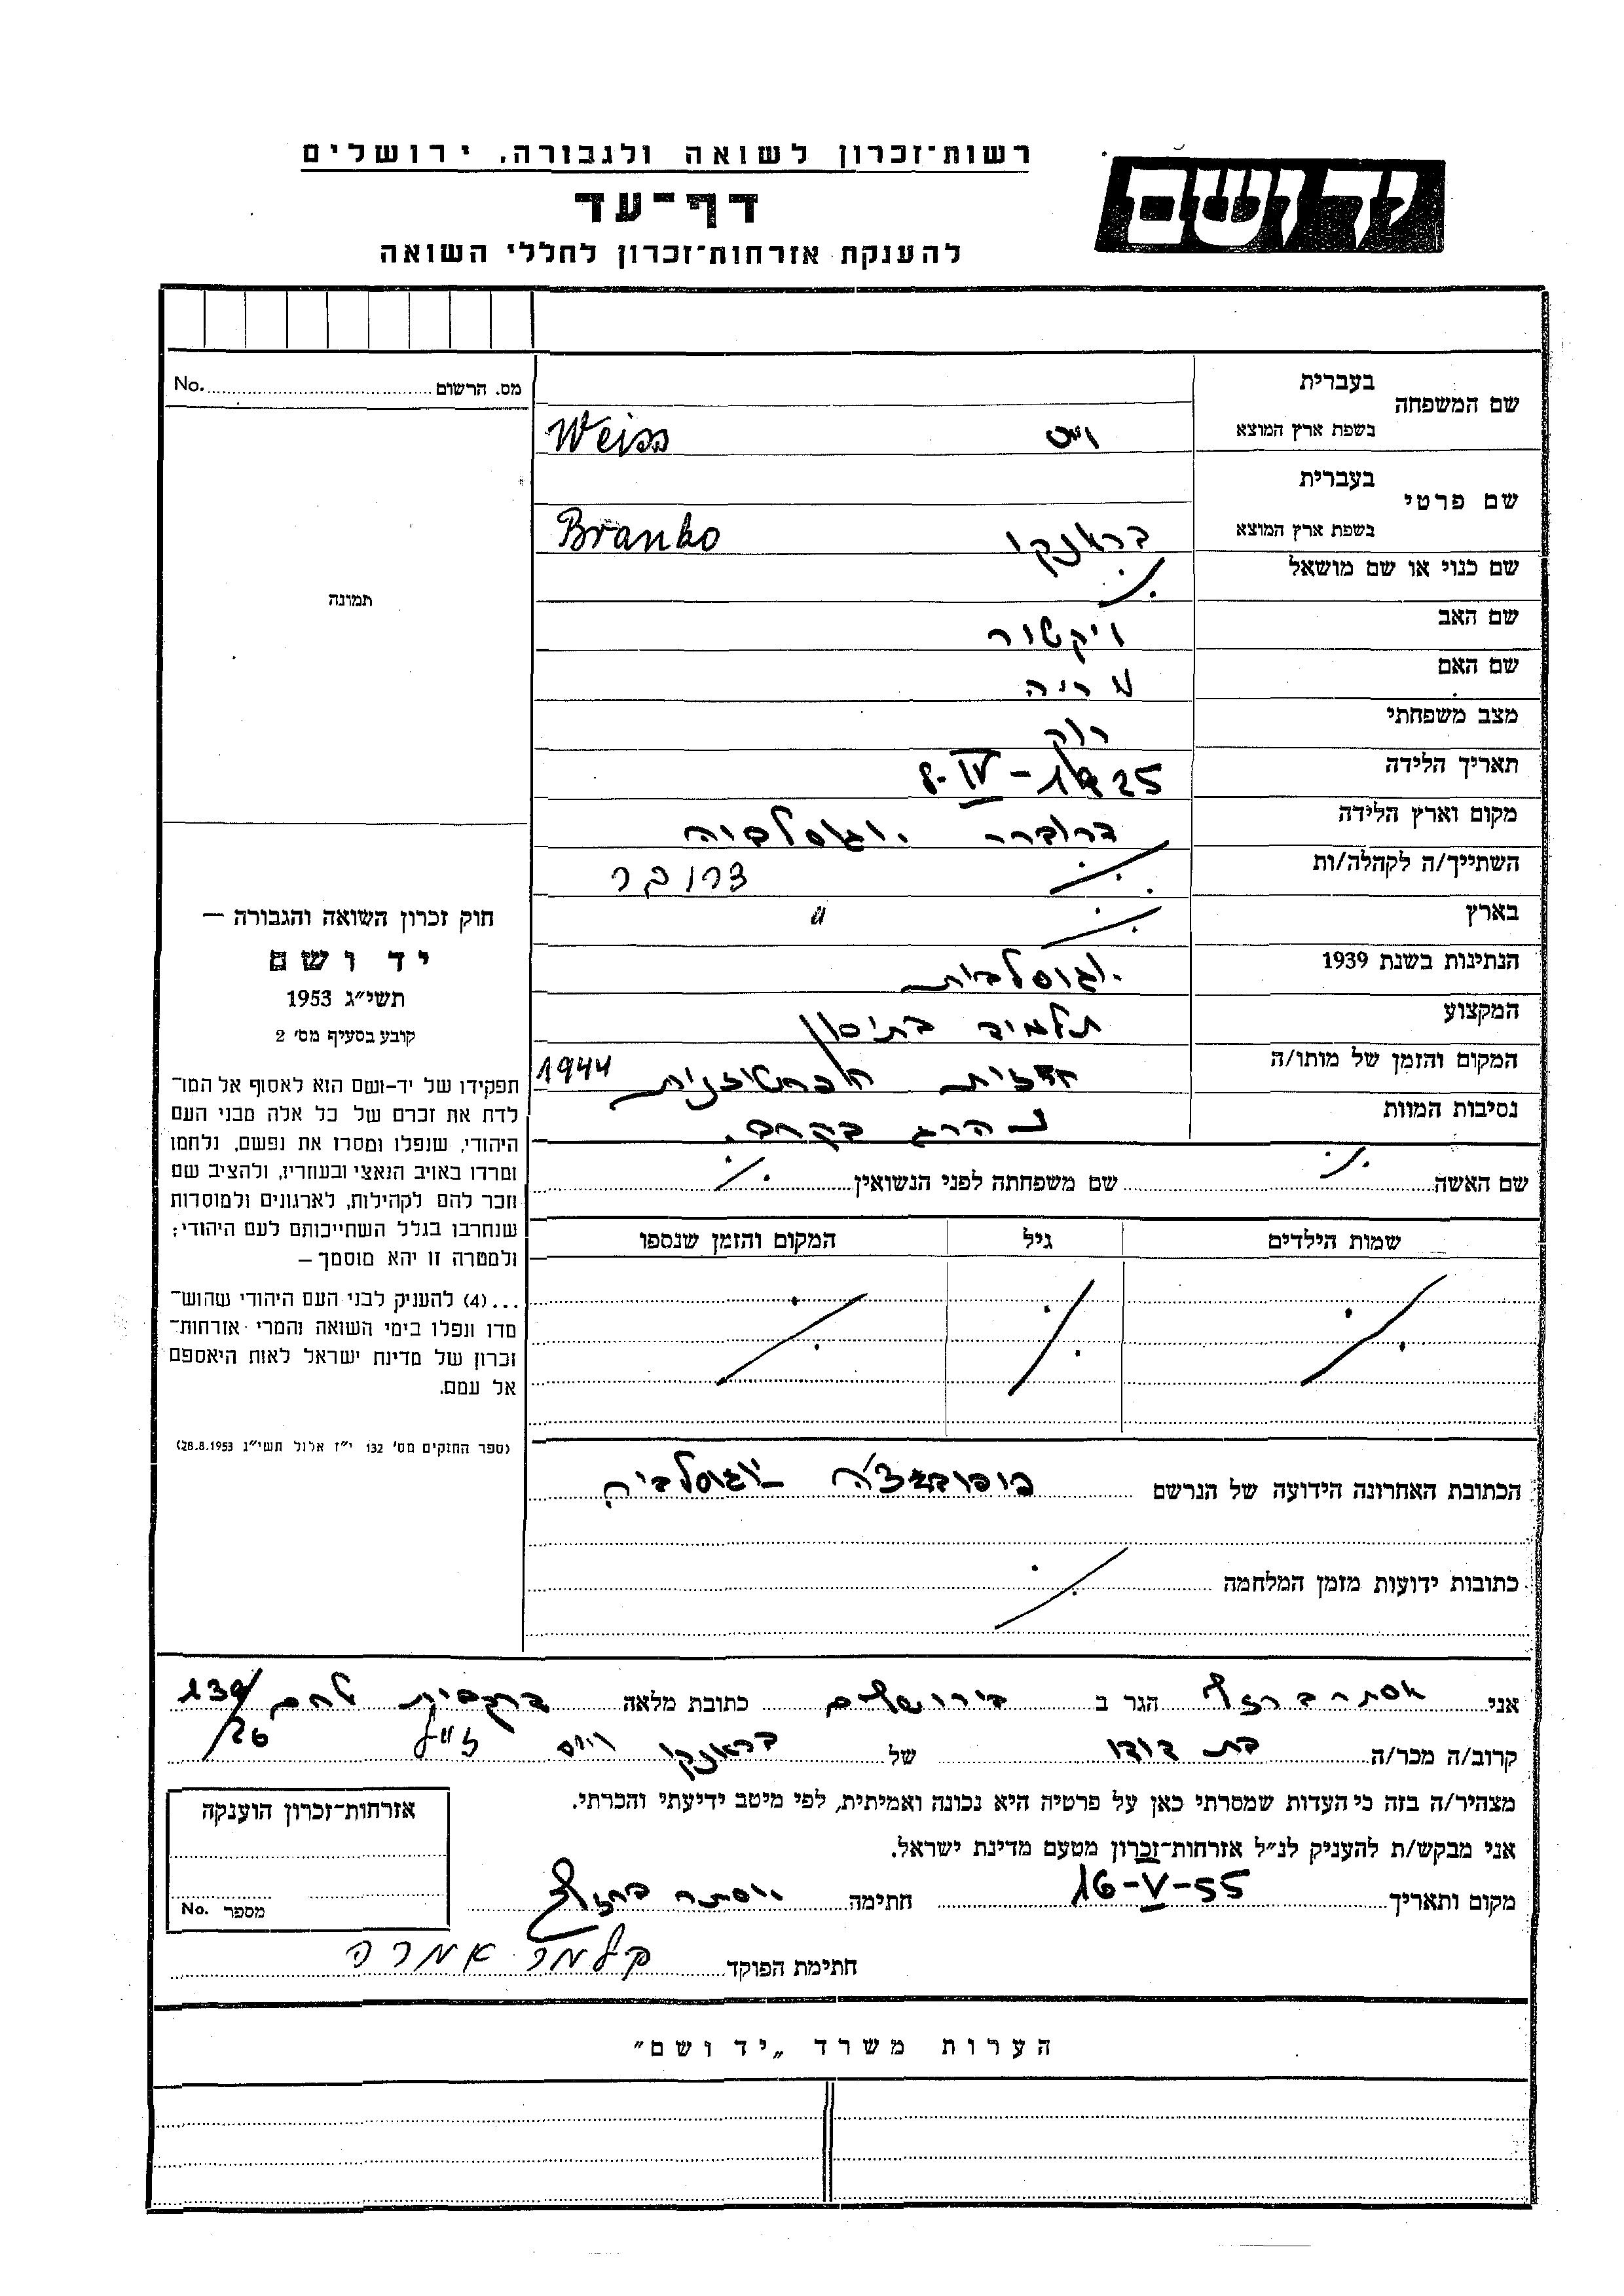 רשות־זכרון לשואה ולגבורה, ירושלים
יד ושם
דף־עד
להענקת אזרחות־זכרון לחללי השואה
מס. הרשום No.
תמונה
שם המשפחה
בעברית
בשפת ארץ המוצא וייס Weiss
שם פרטי
בעברית
בשפת ארץ המוצא בראנקו Branko
שם כנוי או שם מושאל ./.
שם האב ויקטור
שם האם מריה
מצב משפחתי רווק
תאריך הלידה 8-IV-1925
מקום וארץ הלידה דרובר יוגוסלביה
השתייך/ה לקהלה/ות ./. דרובר
בארץ ./. "
הנתינות בשנת 1939 יוגוסלבית
המקצוע תלמיד בתיכון
המקום והזמן של מותו/ה חזית הפרטיזנית 1944
נסיבות המוות נהרג בקרב.
שם האשה ./. שם משפחתה לפני הנשואין ./.
שמות הילדים גיל המקום והזמן שנספו
./. ./. ./.
חוק זכרון השואה והגבורה —
יד ושם
תשי״ג 1953
קובע בסעיף מס׳ 2
תפקידו של יד-ושם הוא לאסוף אל המו־
לדת את זכרם של כל אלה מבני העם
היהודי, שנפלו ומסרו את נפשם, נלחמו
ומרדו באויב הנאצי ובעוזריו, ולהציב שם
וזכר להם לקהילות, לארגונים ולמוסדות
שנחרבו בגלל השתייכותם לעם היהודי;
ולמטרה זו יהא מוסמך —
...(4) להעניק לבני העם היהודי שהוש־
מדו ונפלו בימי השואה והמרי אזרחות־
זכרון של מדינת ישראל לאות היאספם
אל עמם.
(ספר החוקים מס׳ 132 י״ז אלול תשי״ג 28.8.1953)
הכתובת האחרונה הידועה של הנרשם יוגוסלביה
כתובות ידועות מזמן המלחמה ./.
אני אסתר הגר ב בירושלים כתובת מלאה לחם 139/26
קרוב/ה מכר/ה בת דודו של בראנקו וייס ז״ל
מצהיר/ה בזה כי העדות שמסרתי כאן על פרטיה היא נכונה ואמיתית, לפי מיטב ידיעתי והכרתי.
אני מבקש/ת להעניק לנ״ל אזרחות־זכרון מטעם מדינת ישראל.
מקום ותאריך 16-V-55 חתימה אסתר
חתימת הפוקד קלמר אמרה
אזרחות־זכרון הוענקה
מספר No.
הערות משרד „יד ושם״